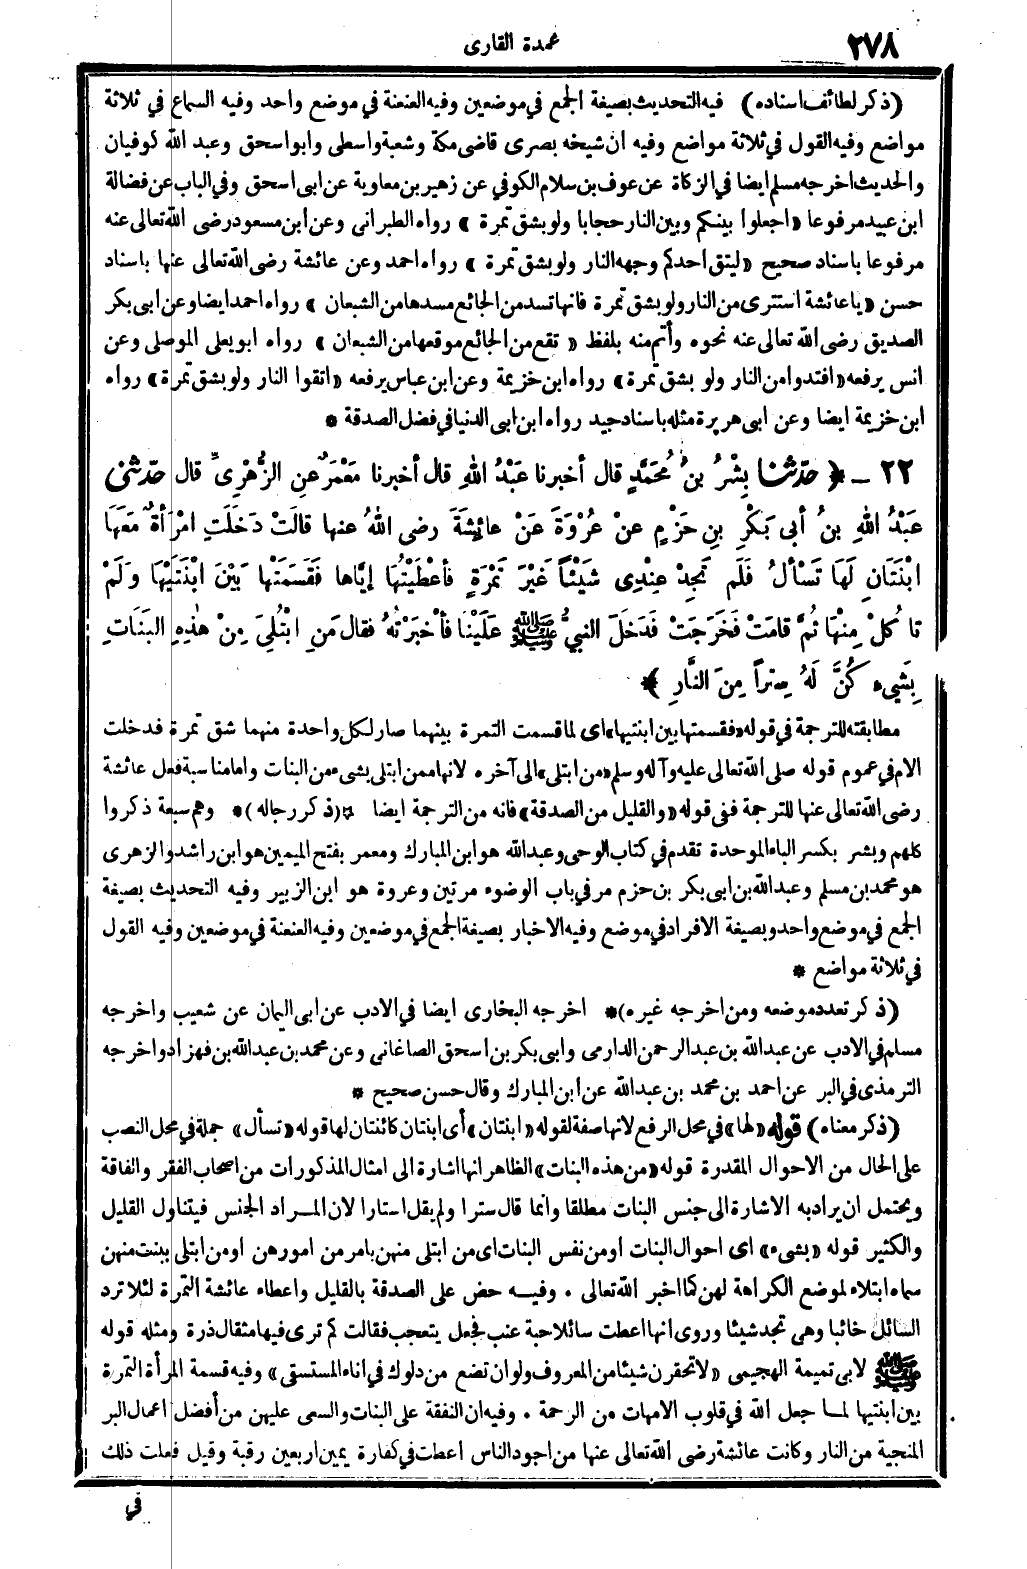 ٢٧٨
عمدة القارى
(ذكر لطائف اسناده) فيه التحديث بصيغة الجمع في موضعين وفيه العنعنة في موضع واحد وفيه السماع في ثلاثة
مواضع وفيه القول في ثلاثة مواضع وفيه ان شيخه بصرى قاضى مكة وشعبة واسطى وابواسحق وعبد الله كوفيان
والحديث اخرجه مسلم ايضا في الزكاة عن عوف بن سلام الكوفي عن زهير بن معاوية عن ابى اسحق وفي الباب عن فضالة
ابن عبيد مرفوعا «اجعلوا بينكم وبين النار حجابا ولو بشق تمرة» رواه الطبرانى وعن ابن مسعود رضى الله تعالى عنه
مرفوعا باسناد صحيح «ليتق احدكم وجهه النار ولو بشق تمرة» رواه احمد وعن عائشة رضى الله تعالى عنها باسناد
حسن «ياعائشة استترى من النار ولو بشق تمرة فانها تسد من الجائع مسدها من الشبعان» رواه احمد ايضا وعن ابى بكر
الصديق رضى الله تعالى عنه نحوه وأتم منه بلفظ «تقع من الجائع موقعها من الشبعان» رواه ابو يعلى الموصلى وعن
انس يرفعه «افتدوا من النار ولو بشق تمرة» رواه ابن خزيمة وعن ابن عباس يرفعه «اتقوا النار ولو بشق تمرة» رواه
ابن خزيمة ايضا وعن ابى هريرة مثله باسناد جيد رواه ابن ابى الدنيا في فضل الصدقة *
٢٢ ـ ﴿ حدثنا بِشْرُ بنُ مُحَمَّدٍ قال أخبرنا عَبْدُ اللهِ قال أخبرنا مَعْمَرٌ عنِ الزُّهْرِىِّ قال حدثنى
عَبْدُ اللهِ بنُ أبى بَكْرِ بنِ حَزْمٍ عنْ عُرْوَةَ عَنْ عائِشَةَ رضى اللهُ عنها قالَتْ دَخَلَتِ امْرَأةٌ مَعَهَا
ابْنَتَانِ لَهَا تَسْألُ فَلَم تَجِدْ عِنْدِى شَيْئاً غَيْرَ تَمْرَةٍ فأعْطَيْتُهَا إيَّاها فَقَسَمَتْها بَيْنَ ابْنَتَيْهَا وَلَمْ
تأكُلْ مِنْهَا ثُمَّ قامَتْ فَخَرَجَتْ فَدَخَلَ النبيُّ ﷺ عَلَيْنَا فأخْبَرْتُهُ فقال مَنِ ابْتُلِىَ مِنْ هٰذِهِ البَنَاتِ
بِشَيْء كُنَّ لَهُ سِتراً مِنَ النَّارِ ﴾ *
مطابقته للترجمة في قوله «فقسمتها بين ابنتيها» اى لما قسمت التمرة بينهما صار لكل واحدة منهما شق تمرة فدخلت
الام في عموم قوله صلى الله تعالى عليه وآله وسلم «من ابتلى» الى آخره لانها ممن ابتلى بشىء من البنات واما مناسبة فعل عائشة
رضى الله تعالى عنها للترجمة ففى قوله «والقليل من الصدقة» فانه من الترجمة ايضا * (ذكر رجاله) * وهم سبعة ذكروا
كلهم وبشر بكسر الباء الموحدة تقدم في كتاب الوحى وعبدالله هو ابن المبارك ومعمر بفتح الميمين هو ابن راشد والزهرى
هو محمد بن مسلم وعبدالله بن ابى بكر بن حزم مر في باب الوضوء مرتين وعروة هو ابن الزبير وفيه التحديث بصيغة
الجمع في موضع واحد وبصيغة الافراد في موضع وفيه الاخبار بصيغة الجمع في موضعين وفيه العنعنة في موضعين وفيه القول
في ثلاثة مواضع *
(ذكر تعدد موضعه ومن اخرجه غيره) * اخرجه البخارى ايضا في الادب عن ابى اليمان عن شعيب واخرجه
مسلم في الادب عن عبدالله بن عبدالرحمن الدارمى وابى بكر بن اسحق الصاغانى وعن محمد بن عبدالله بن فهزاد واخرجه
الترمذى في البر عن احمد بن محمد بن عبدالله عن ابن المبارك وقال حسن صحيح *
(ذكر معناه) قوله «لها» في محل الرفع لانها صفة لقوله «ابنتان» أى ابنتان كائنتان لها قوله «تسأل» جملة في محل النصب
على الحال من الاحوال المقدرة قوله «من هذه البنات» الظاهر انها اشارة الى امثال المذكورات من اصحاب الفقر والفاقة
ويحتمل ان يراد به الاشارة الى جنس البنات مطلقا وانما قال سترا ولم يقل استارا لان المراد الجنس فيتناول القليل
والكثير قوله «بشىء» اى احوال البنات او من نفس البنات اى من ابتلى منهن بامر من امورهن او من ابتلى ببنت منهن
سماه ابتلاء لموضع الكراهة لهن كما اخبر الله تعالى . وفيه حض على الصدقة بالقليل واعطاء عائشة التمرة لئلا ترد
السائل خائبا وهى تجد شيئا وروى انها اعطت سائلا حبة عنب فجعل يتعجب فقالت كم ترى فيها مثقال ذرة ومثله قوله
ﷺ لابى تميمة الهجيمى «لا تحقرن شيئا من المعروف ولو ان تضع من دلوك في اناء المستسقى» وفيه قسمة المرأة التمرة
بين ابنتيها لما جعل الله في قلوب الامهات من الرحمة . وفيه ان النفقة على البنات والسعى عليهن من أفضل اعمال البر
المنجية من النار وكانت عائشة رضى الله تعالى عنها من اجود الناس اعطت في كفارة يمين اربعين رقبة وقيل فعلت ذلك
في